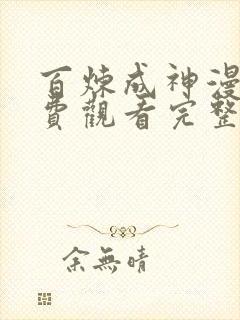 百煉成神漫
費觀看完整
余無晴